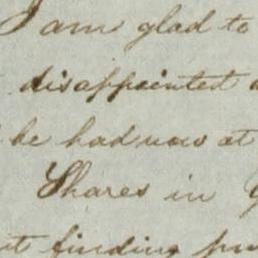 I am glad to
disappointed
be had now at
Shares in
finding